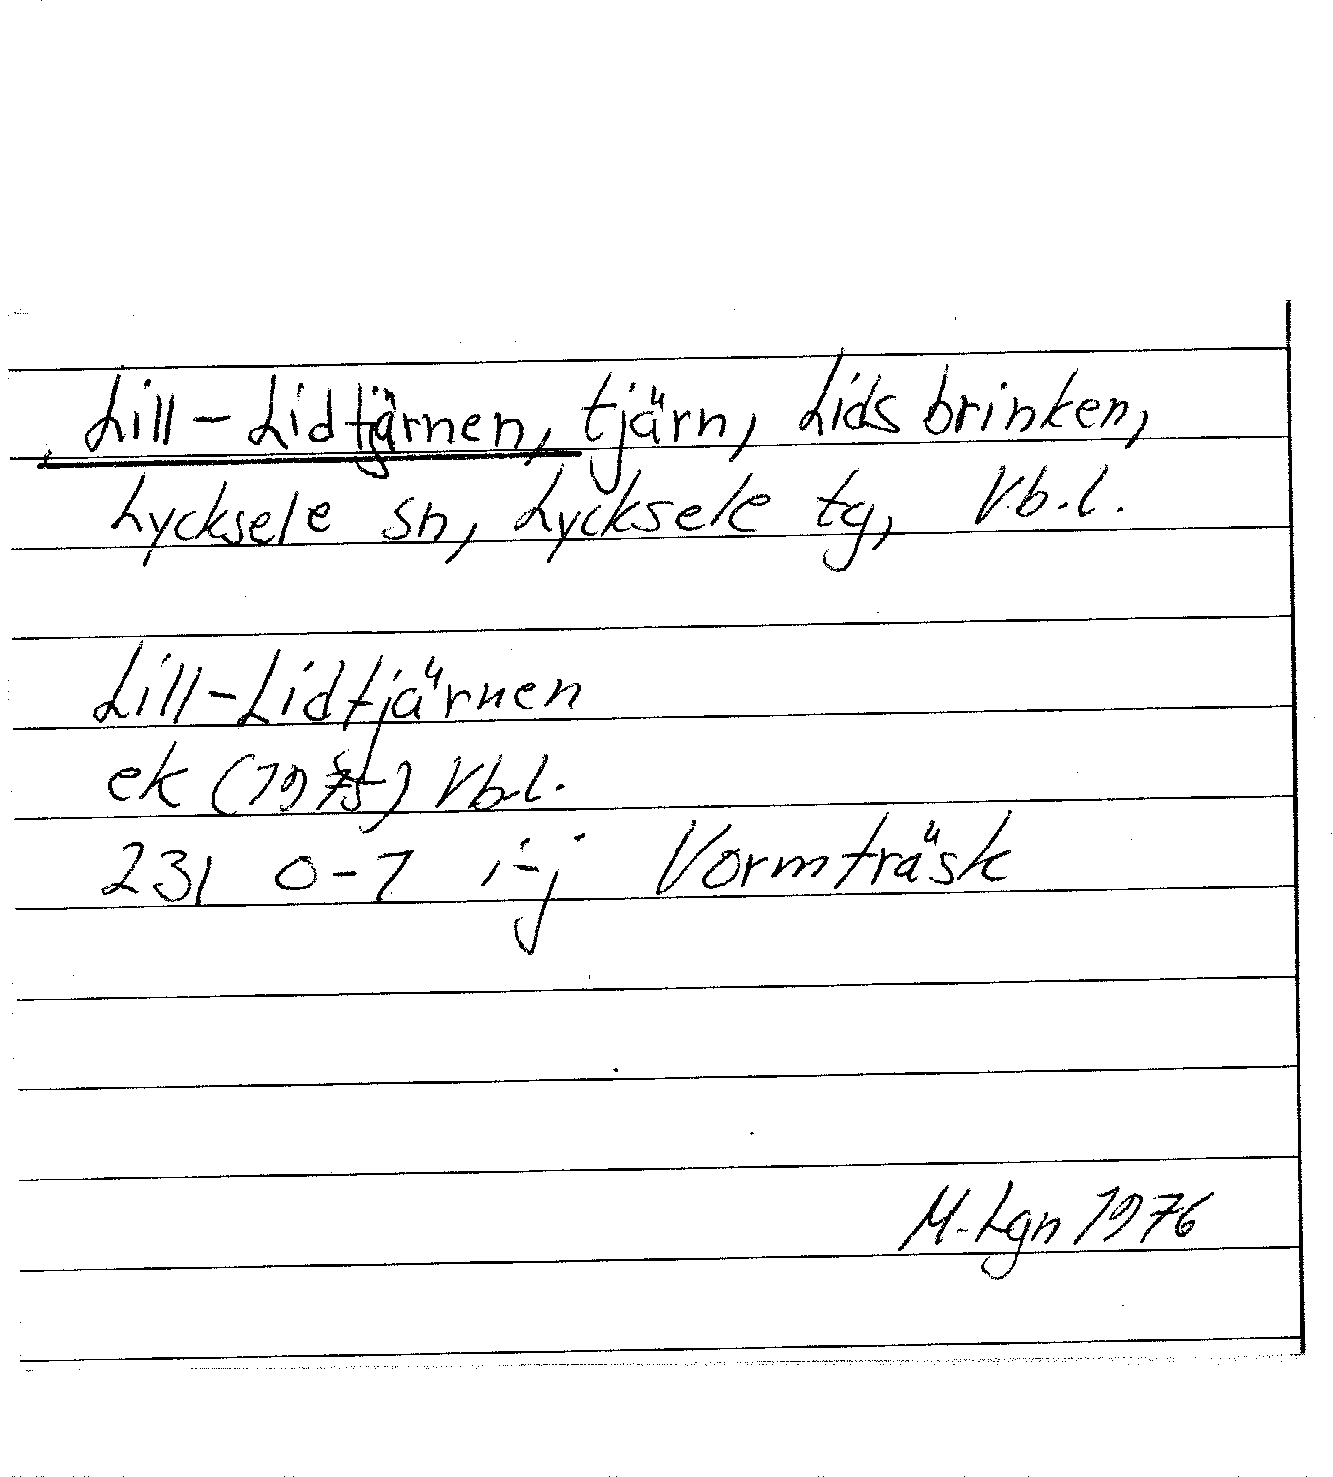 Lill-Lidtjärnen, tjärn, Lidsbrinken,
Lycksele sn, Lycksele tg, Vb.l.
Lill-Lidtjärnen
ek (1975) Vb.l.
231 0-7 i-j Vormträsk
M-Lgn 1976